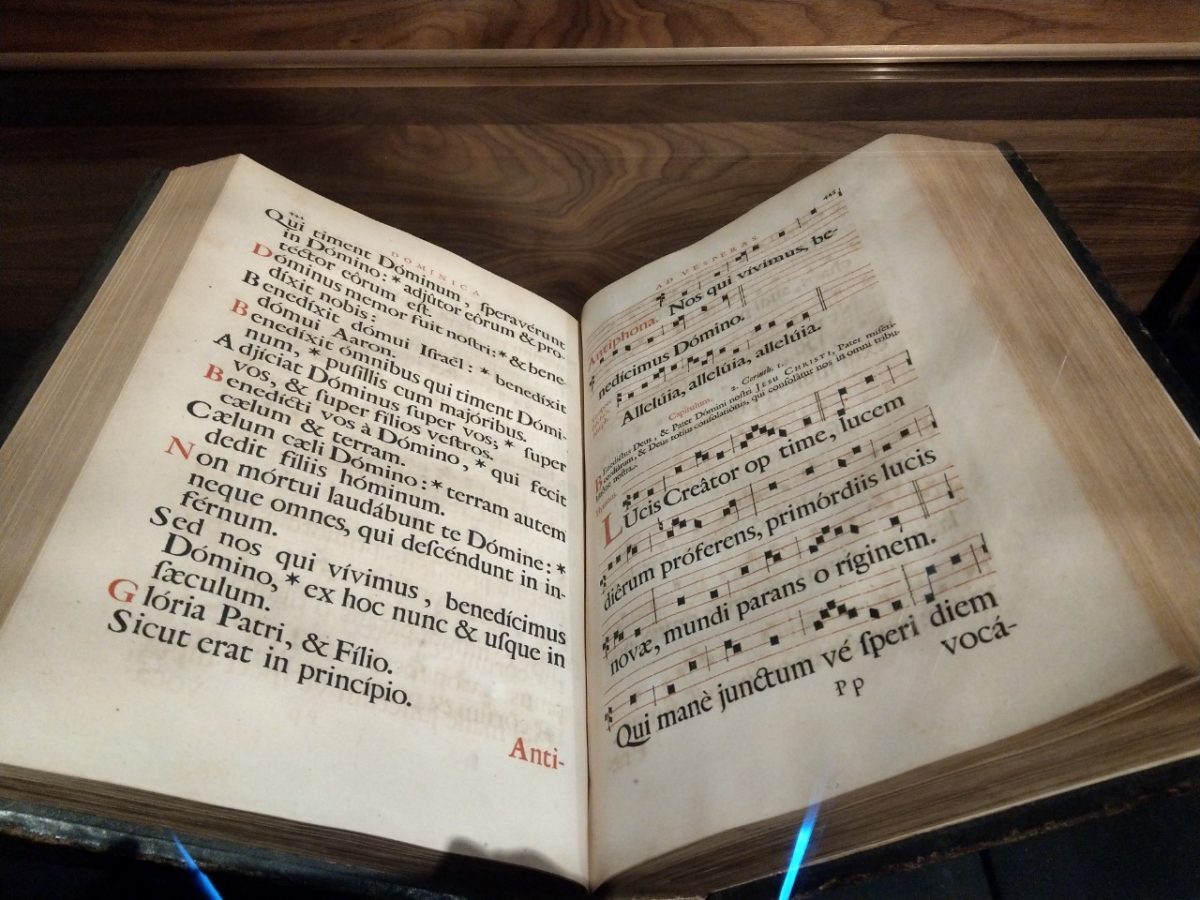 DOMINICA
Qui timent Dóminum, ſperavérunt
in Dómino: * adjûtor eôrum & pro-
téctor eôrum eſt.
Dóminus memor fuit noſtri: * & bene-
díxit nobis:
Benedíxit dómui Iſraël: * benedíxit
dómui Aaron.
Benedíxit ómnibus qui timent Dómi-
num, * puſíllis cum majóribus.
Adjíciat Dóminus ſuper vos; * ſuper
vos, & ſuper fílios veſtros.
Benedícti vos à Dómino, * qui fecit
cælum & terram.
Cælum cæli Dómino: * terram autem
dedit fíliis hóminum.
Non mórtui laudábunt te Dómine: *
neque omnes, qui deſcéndunt in in-
férnum.
Sed nos qui vívimus, benedícimus
Dómino, * ex hoc nunc & uſque in
ſæculum.
Glória Patri, & Fílio.
Sicut erat in princípio.
Anti-
AD VESPERAS
Antiphona. Nos qui vívimus, be-
nedícimus Dómino.
Allelúia, allelúia, allelúia.
Capitulum. 2. Corinth. 1.
Benedíctus Deus, & Pater Dómini noſtri JESU CHRISTI, Pater miſeri-
cordiárum, & Deus totíus conſolatiónis, qui conſolátur nos in omni tribu-
Hymnus.
LUcis Creâtor op time, lucem
diêrum próferens, primórdiis lucis
novæ, mundi parans o ríginem.
Qui manè junctum vé ſperi diem
vocá-
Pp